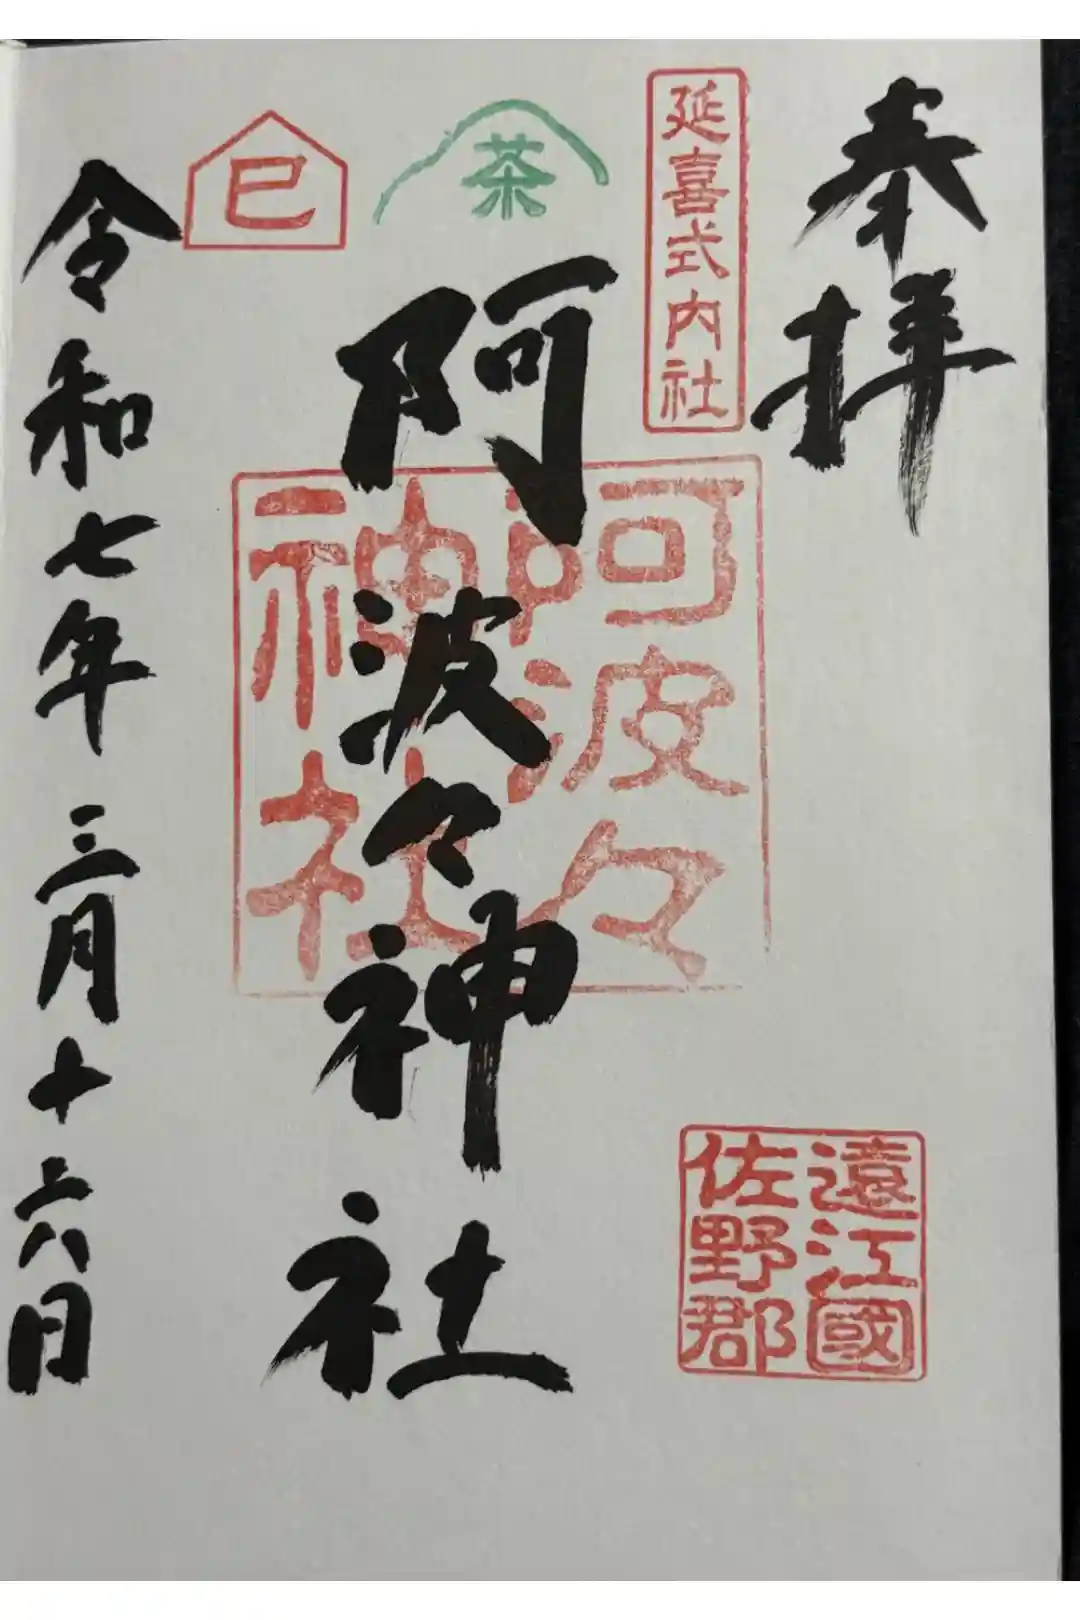 奉拝
延喜式内社
遠江國
佐野郡
茶
阿波々神社
阿波々
神社
巳
令和七年三月十六日